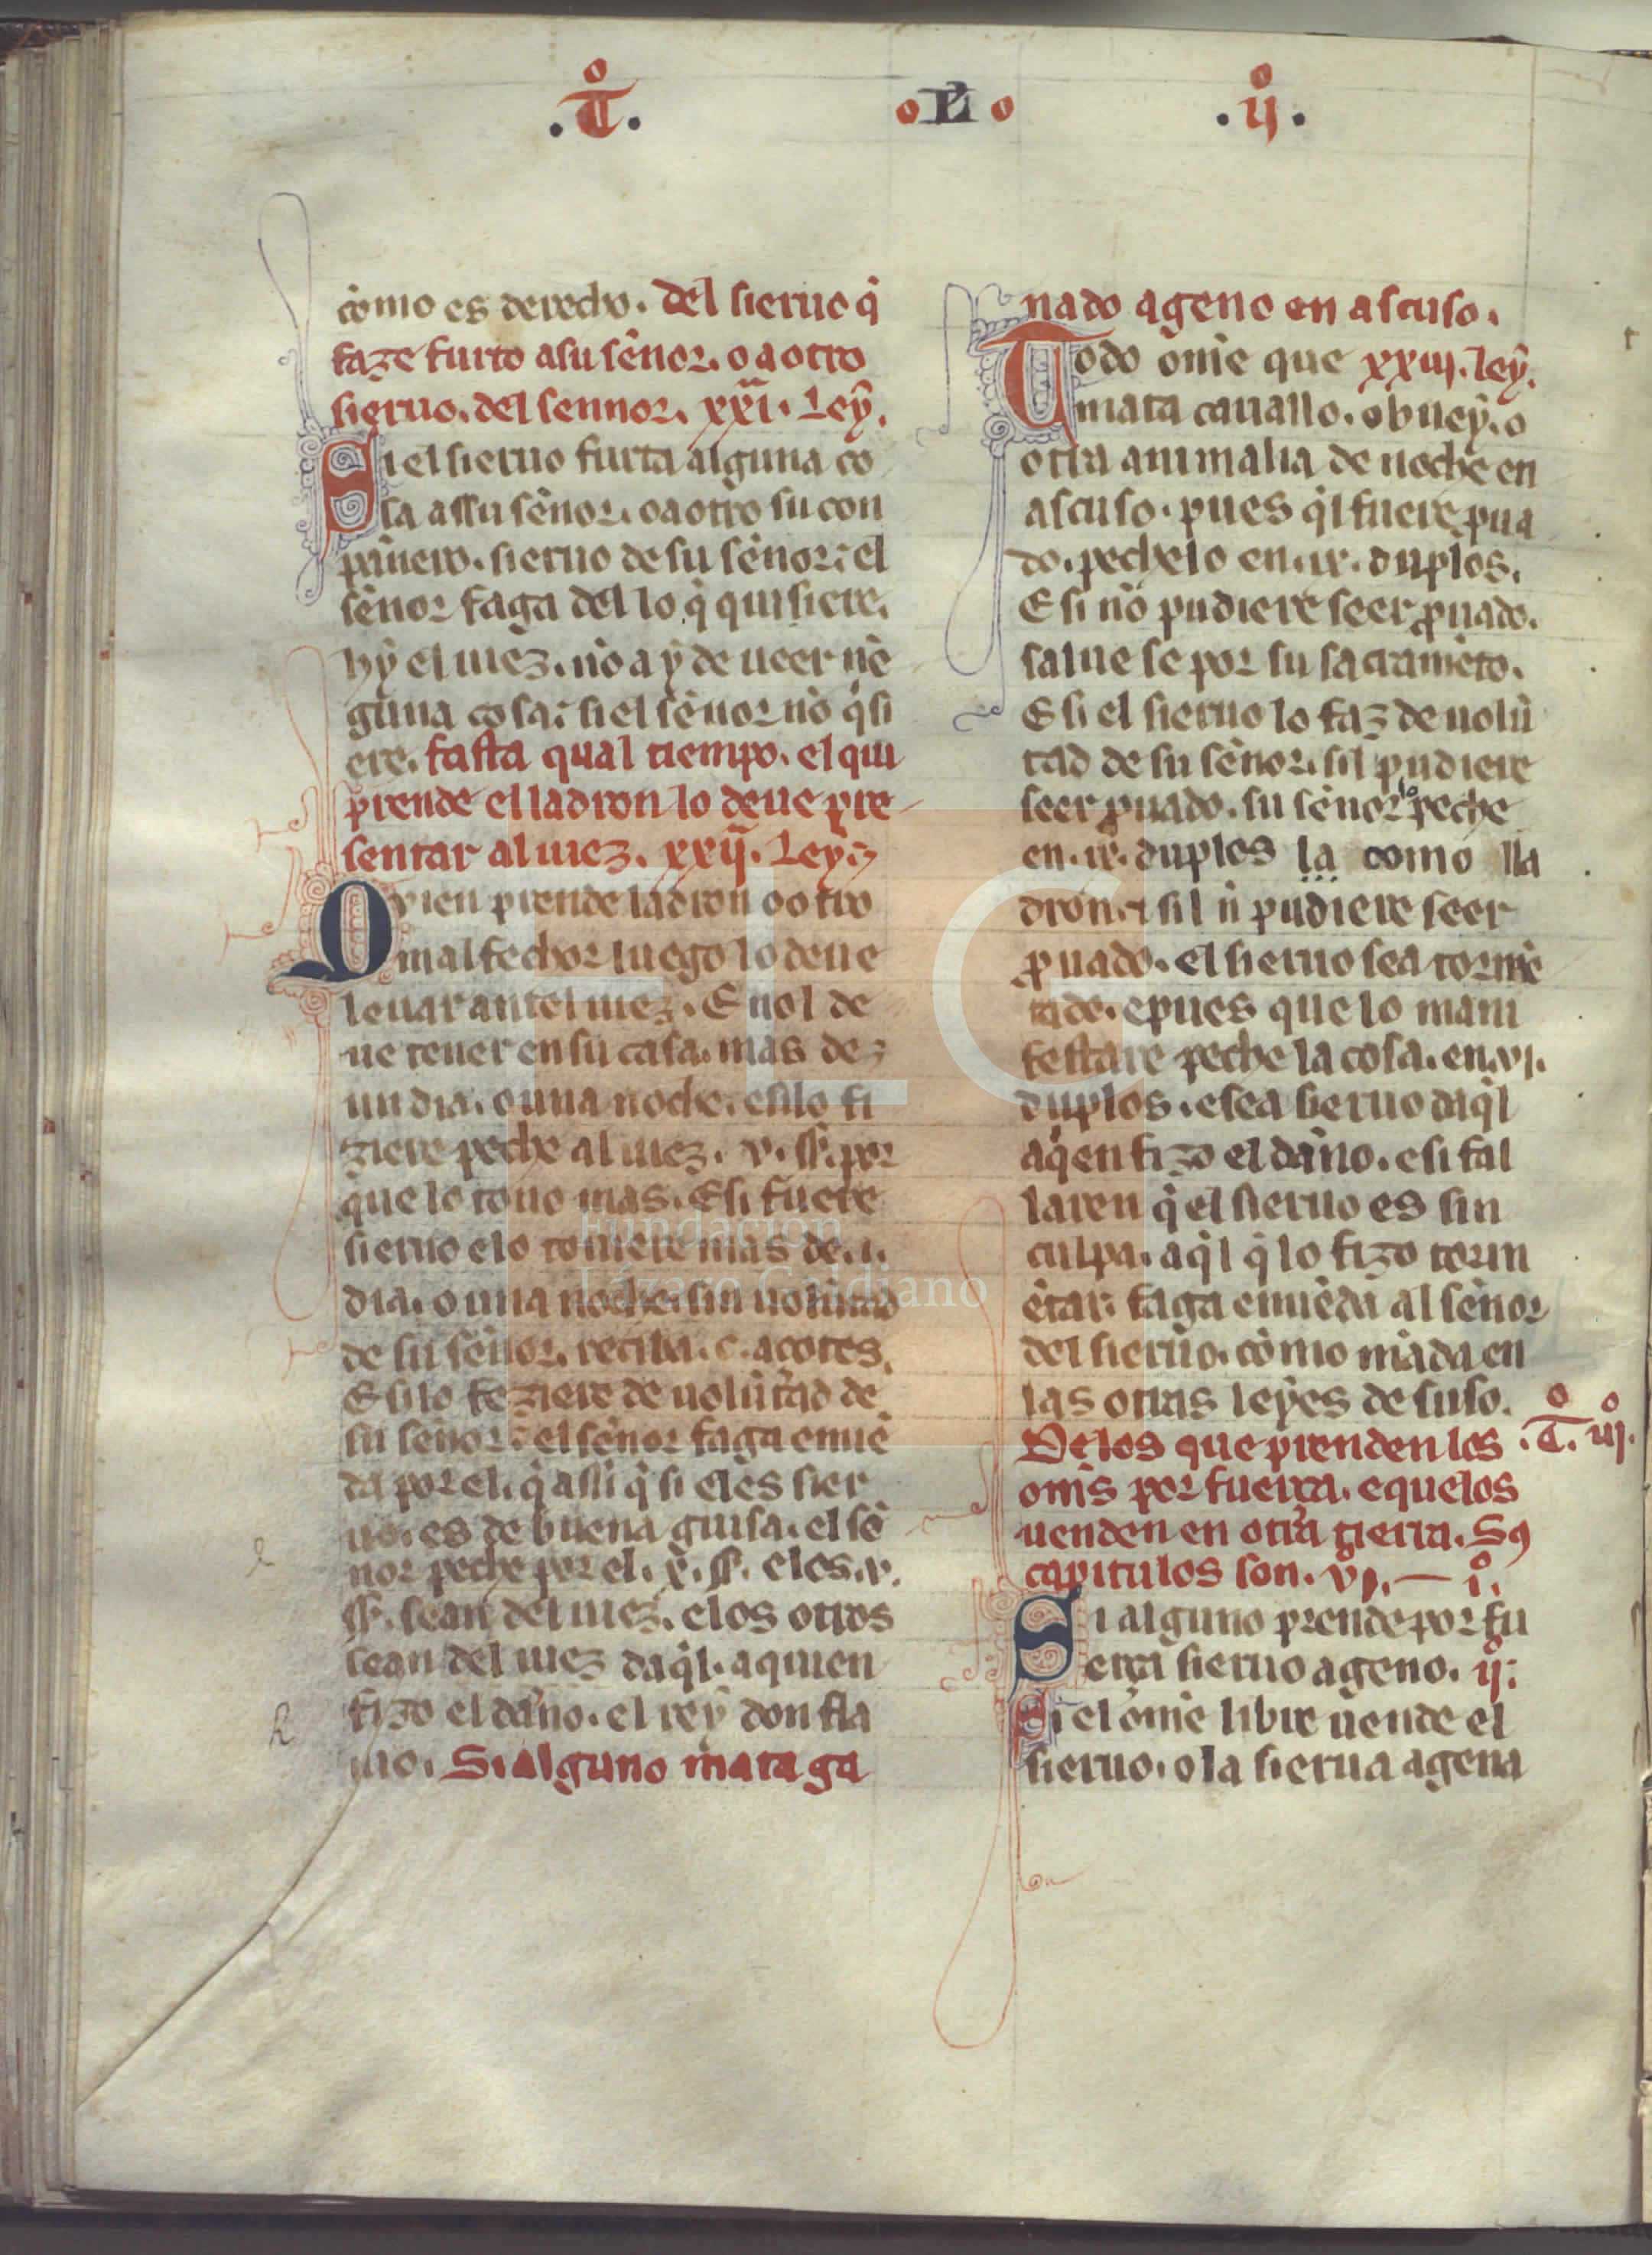 .T̊. L̃ .ij̊.
cõmo es derecho. del sieruo q̇
faze furto a su sẽnor. o a otro
sieruo. del sennor. xxi. Ley.
Si el sieruo furta alguna co
sa assu sẽnor. o a otro su con
pãnero. sieruo de su sẽnor: el
sẽnor faga del lo q̇ quisiere.
hy el iuez. nõ a y de ueer nẽ
guna cosa: si el sẽnor nõ q̇si
ere. fasta qual tiempo. el qui
prende el ladron lo deue pre
sentar al iuez. xxij. Ley.
Quien prende ladron o otro
malfechor luego lo deue
leuar antel iuez. E nol de
ue tener en su casa. mas de
un dia. o una noche. e si lo fi
ziere peche al iuez. v. ss. por
que lo touo mas. E si fuere
sieruo e lo touiere mas de .i.
dia. o una noche. sin uolũtad
de su sẽnor. reciba. c. açotes.
E si lo feziere de uolũtad de
su sẽnor: el sẽnor faga emiẽ
da por el. q̇ assi q̇ si el es sier
uo. es de buena guisa. el sẽ
nor peche por el. x. ss. e los .v.
ss. sean del iuez. e los otros
sean del iuez daq̇l. a quien
fizo el dãno. el rey don fla
uio. Si alguno mata ga
nado ageno en ascuso.
Todo om̃e que xxiij. ley.
mata cauallo. o buey. o
otra animalia de noche en
ascuso. pues q̇l fuere ꝓua
do. pechelo en .ix. duplos.
E si nõ pudiere seer ꝓuado.
salue se por su sacramẽto.
E si el sieruo lo faz de uolũ
tad de su sẽnor. sil pudiere
seer ꝓuado. su sẽnor lo peche
en .ix. duplos la como lla
dron. e sil ñ pudiere seer
ꝓuado. el sieruo sea tormẽ
tado. e pues que lo mani
festare peche la cosa. en .vj.
duplos. e sea sieruo daq̇l
a q̇en fizo el dãno. e si fal
laren q̇ el sieruo es sin
culpa. aq̇l q̇ lo fizo torm
ẽtar: faga emiẽda al sẽnor
del sieruo. cõmo mãda en
las otras leyes de suso.
De los que prenden los .T̊. iij̊.
om̃s por fuerça. e que los
uenden en otra tierra. Sꝯ
capitulos son. vj. — i̊.
Si alguno prende por fu
erça sieruo ageno. ij̊:
Si el om̃e libre uende el
sieruo. o la sierua agena
FLG
Fundación
Lázaro Galdiano